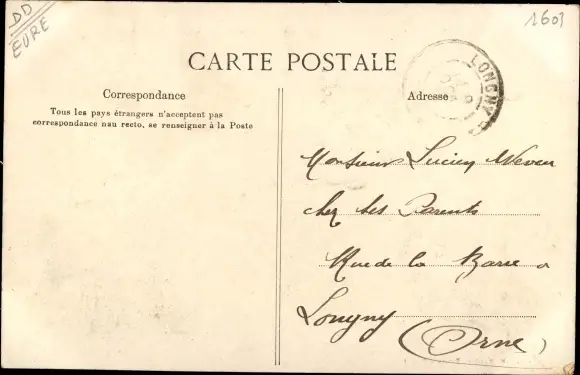 DD
EURE
1601
CARTE POSTALE
Correspondance
Tous les pays étrangers n'acceptent pas
correspondance nau recto, se renseigner à la Poste
Adresse
LONGNY
Monsieur Lucien
chez ses Parents
Rue de la Barre a
Longny (Orne)